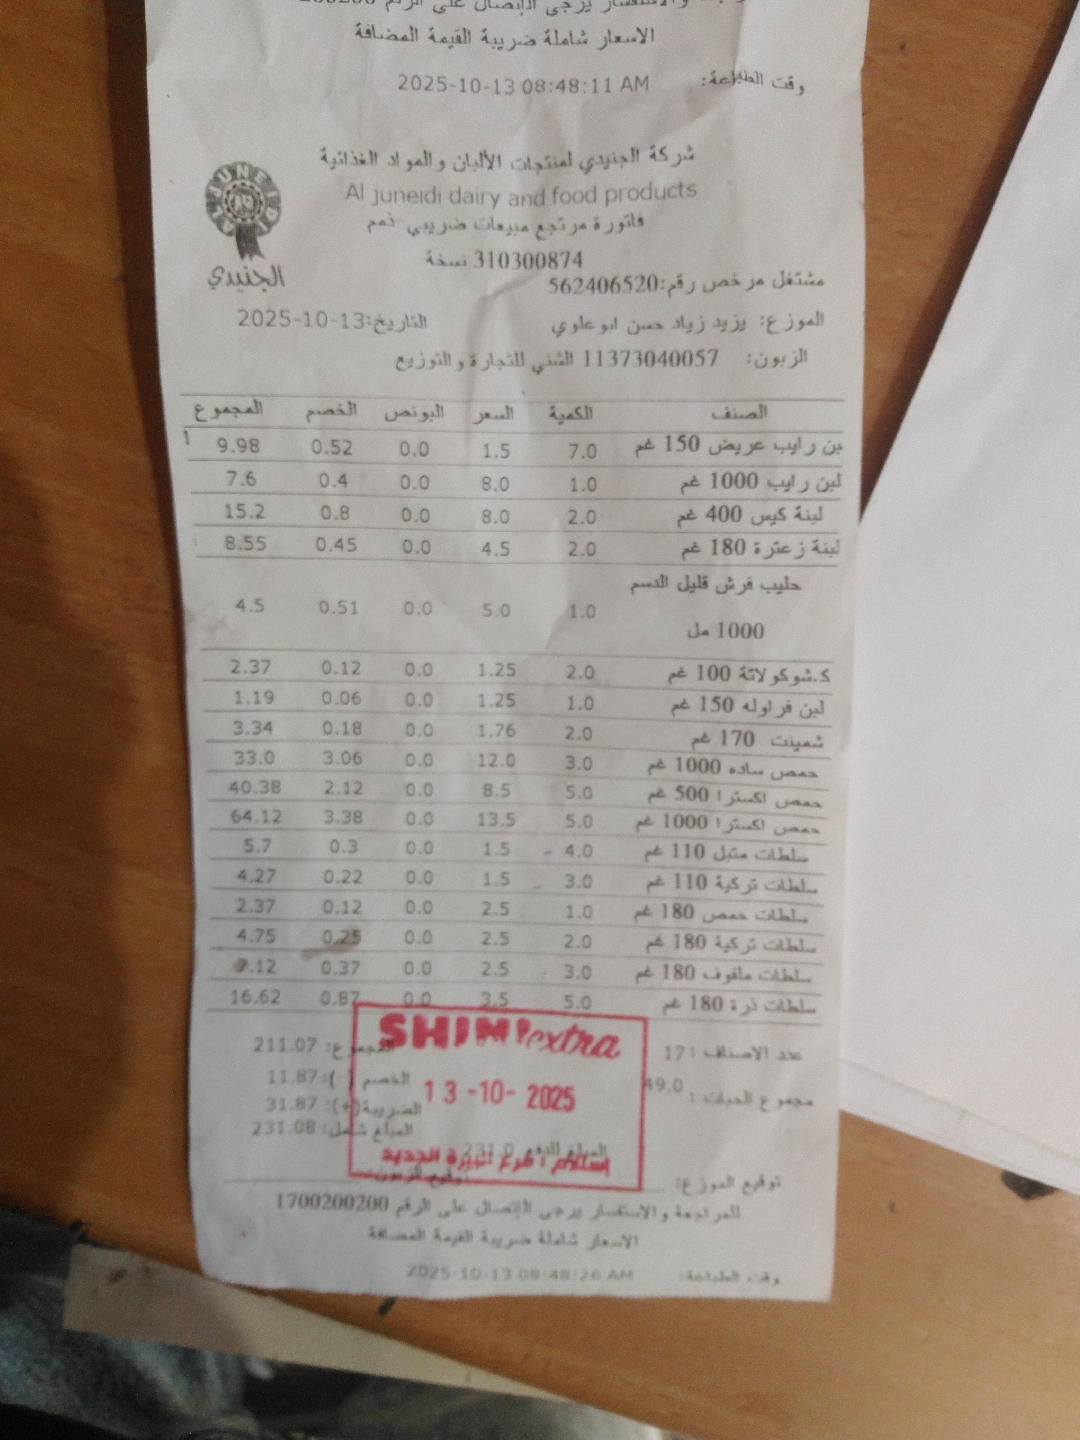 الاسعار شاملة ضريبة القيمة المضافة
وقت الطباعة: 2025-10-13 08:48:11 AM
AL JUNEIDI
الجنيدي
شركة الجنيدي لمنتجات الألبان والمواد الغذائية
Al Juneidi dairy and food products
فاتورة مرتجع مبيعات ضريبي ذمم
310300874 نسخة
مشتغل مرخص رقم:562406520
الموزع: يزيد زياد حسن ابو علوي التاريخ:2025-10-13
الزبون: 11373040057 الشني للتجارة و التوزيع
الصنف الكمية السعر البونص الخصم المجموع
بن رايب عريض 150 غم 7.0 1.5 0.0 0.52 9.98
لبن رايب 1000 غم 1.0 8.0 0.0 0.4 7.6
لبنة كيس 400 غم 2.0 8.0 0.0 0.8 15.2
لبنة زعترة 180 غم 2.0 4.5 0.0 0.45 8.55
حليب فرش قليل الدسم
1000 مل 1.0 5.0 0.0 0.51 4.5
ك.شوكولاتة 100 غم 2.0 1.25 0.0 0.12 2.37
لبن فراوله 150 غم 1.0 1.25 0.0 0.06 1.19
شمينت 170 غم 2.0 1.76 0.0 0.18 3.34
حمص ساده 1000 غم 3.0 12.0 0.0 3.06 33.0
حمص اكسترا 500 غم 5.0 8.5 0.0 2.12 40.38
حمص اكسترا 1000 غم 5.0 13.5 0.0 3.38 64.12
سلطات متبل 110 غم 4.0 1.5 0.0 0.3 5.7
سلطات تركية 110 غم 3.0 1.5 0.0 0.22 4.27
سلطات حمص 180 غم 1.0 2.5 0.0 0.12 2.37
سلطات تركية 180 غم 2.0 2.5 0.0 0.25 4.75
سلطات ملفوف 180 غم 3.0 2.5 0.0 0.37 7.12
سلطات ذرة 180 غم 5.0 3.5 0.0 0.87 16.62
عدد الاصناف : 17 المجموع: 211.07
مجموع الحبات : 49.0 الخصم (-): 11.87
الضريبة(+): 31.87
المبلغ شامل: 231.08
SHINI extra
13-10-2025
توقيع الموزع: توقيع الزبون:
للمراجعة والاستفسار يرجى الإتصال على الرقم 1700200200
الاسعار شاملة ضريبة القيمة المضافة
وقت الطباعة: 2025-10-13 08:48:26 AM